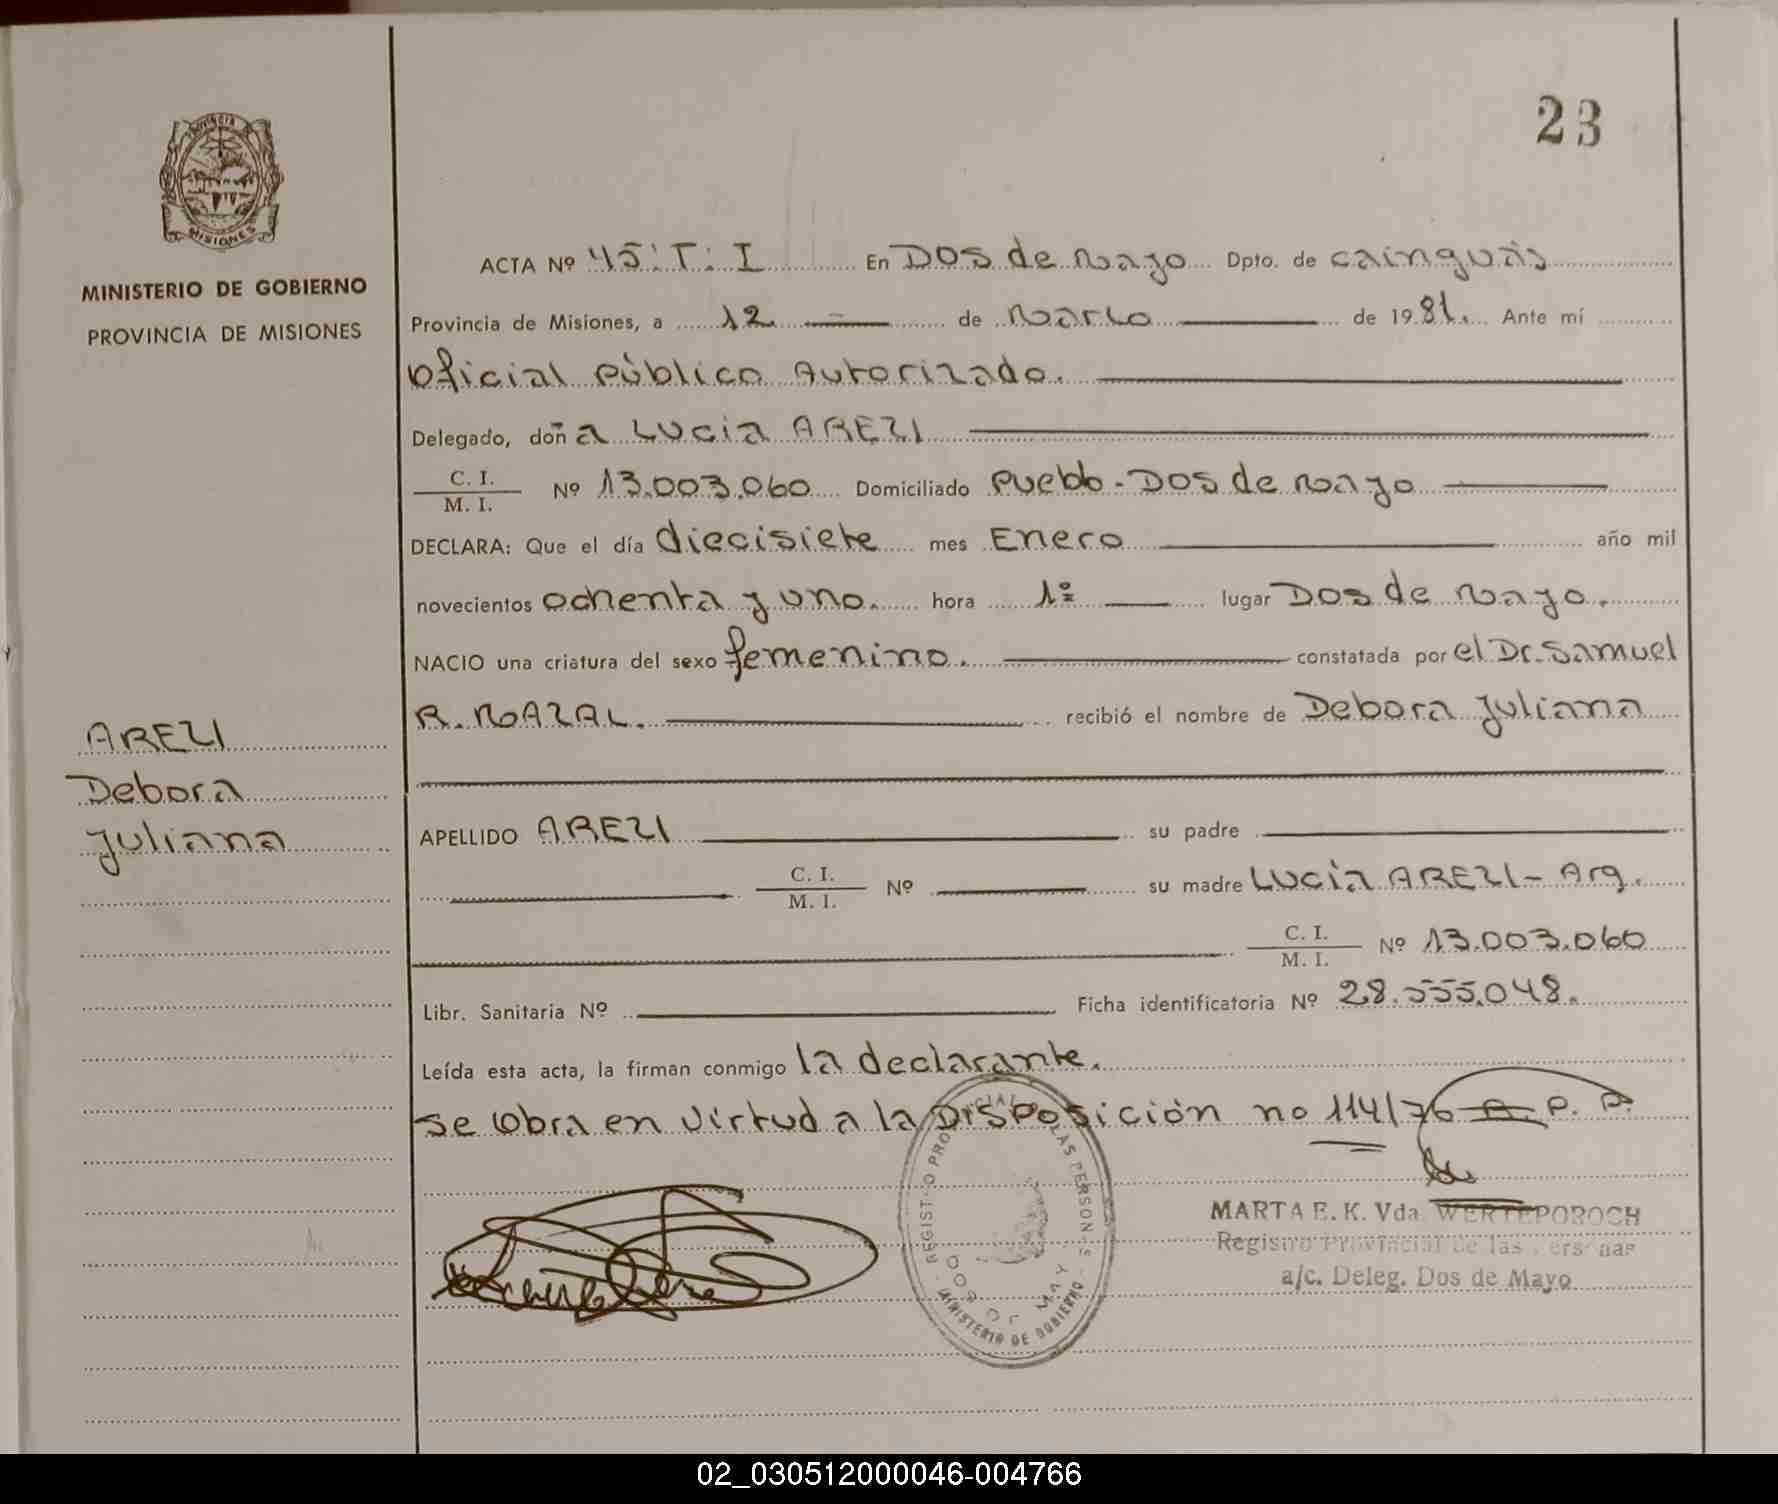 23
PROVINCIA DE
MISIONES
MINISTERIO DE GOBIERNO
PROVINCIA DE MISIONES
ACTA Nº 45:T:I En Dos de Mayo Dpto. de Cainguás
Provincia de Misiones, a 12 de Marzo de 1981. Ante mí
Oficial Público Autorizado.
Delegado, doña Lucia AREZI
C. I. / M. I. Nº 13.003.060 Domiciliado Pueblo - Dos de Mayo
DECLARA: Que el día diecisiete mes Enero año mil
novecientos ochenta y uno. hora 1º lugar Dos de Mayo.
NACIO una criatura del sexo femenino. constatada por el Dr. Samuel
R. MAZAL. recibió el nombre de Debora Juliana
AREZI
Debora
Juliana
APELLIDO AREZI su padre
C. I. / M. I. Nº su madre Lucia AREZI - Arg.
C. I. / M. I. Nº 13.003.060
Libr. Sanitaria Nº Ficha identificatoria Nº 28.555.048.
Leída esta acta, la firman conmigo la declarante.
Se obra en virtud a la Disposición no 114/76 R. P. P.
MINISTERIO DE GOBIERNO
MARTA E. K. Vda WERTEPOROCH
Registro Provincial de las Personas
a/c. Deleg. Dos de Mayo
02_030512000046-004766